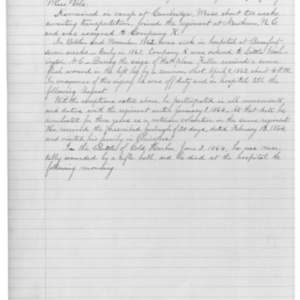 Remained in camp at Cambridge, Mass about two weeks
awaiting transportation, joined the regiment at Newbern, N.C.
and was assigned to Company K.
In October and November 1862 was sick in hospital at Beaufort
1863 Company K was sent to Little Wash-
N.C. During the siege of that place Fuller received a
wound in the left leg by a cannon shot April 1863
of this injury he was off duty and in hospital till the
following August
With the exceptions noted above he participated in all movements
and duties with the regiment until January 1, 1864. At that date he
reenlisted for three years as a veteran volunteer in the same regiment
He received the furlough of 30 days, dated February 1864
and visited his family in
In the Battle of Cold Harbor June 3, 1864, he was mor-
tally wounded by a rifle ball, and he died at the hospital the
following morning.